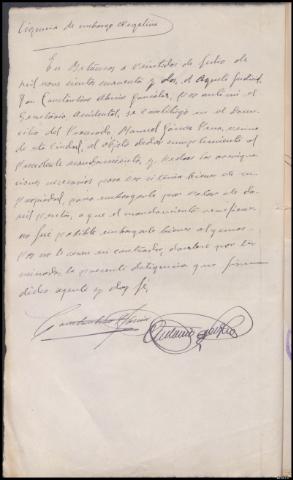 Diligencia de embargo negativa
En Betanzos a veintidos de Julio de
mil novecientos cuarenta y dos, el Agente Judicial,
Don Constantino García, por ante mi el
Secretario Accidental, se constituyó en el domi-
cilio del Procesado, Manuel Gómez Pena, vecino
de esta Ciudad, al objeto de dar cumplimiento al
precedente mandamiento, y hechas las averigua-
ciones necesarias para ver si tenia bienes de su
propiedad, para embargarle por valor de dos
mil pesetas, a que el mandamiento se refiere
no fué posible embargarle bienes algunos
por no le ser encontrados, dandose por ter-
minada la presente diligencia que firma
dicho agente y doy fe,